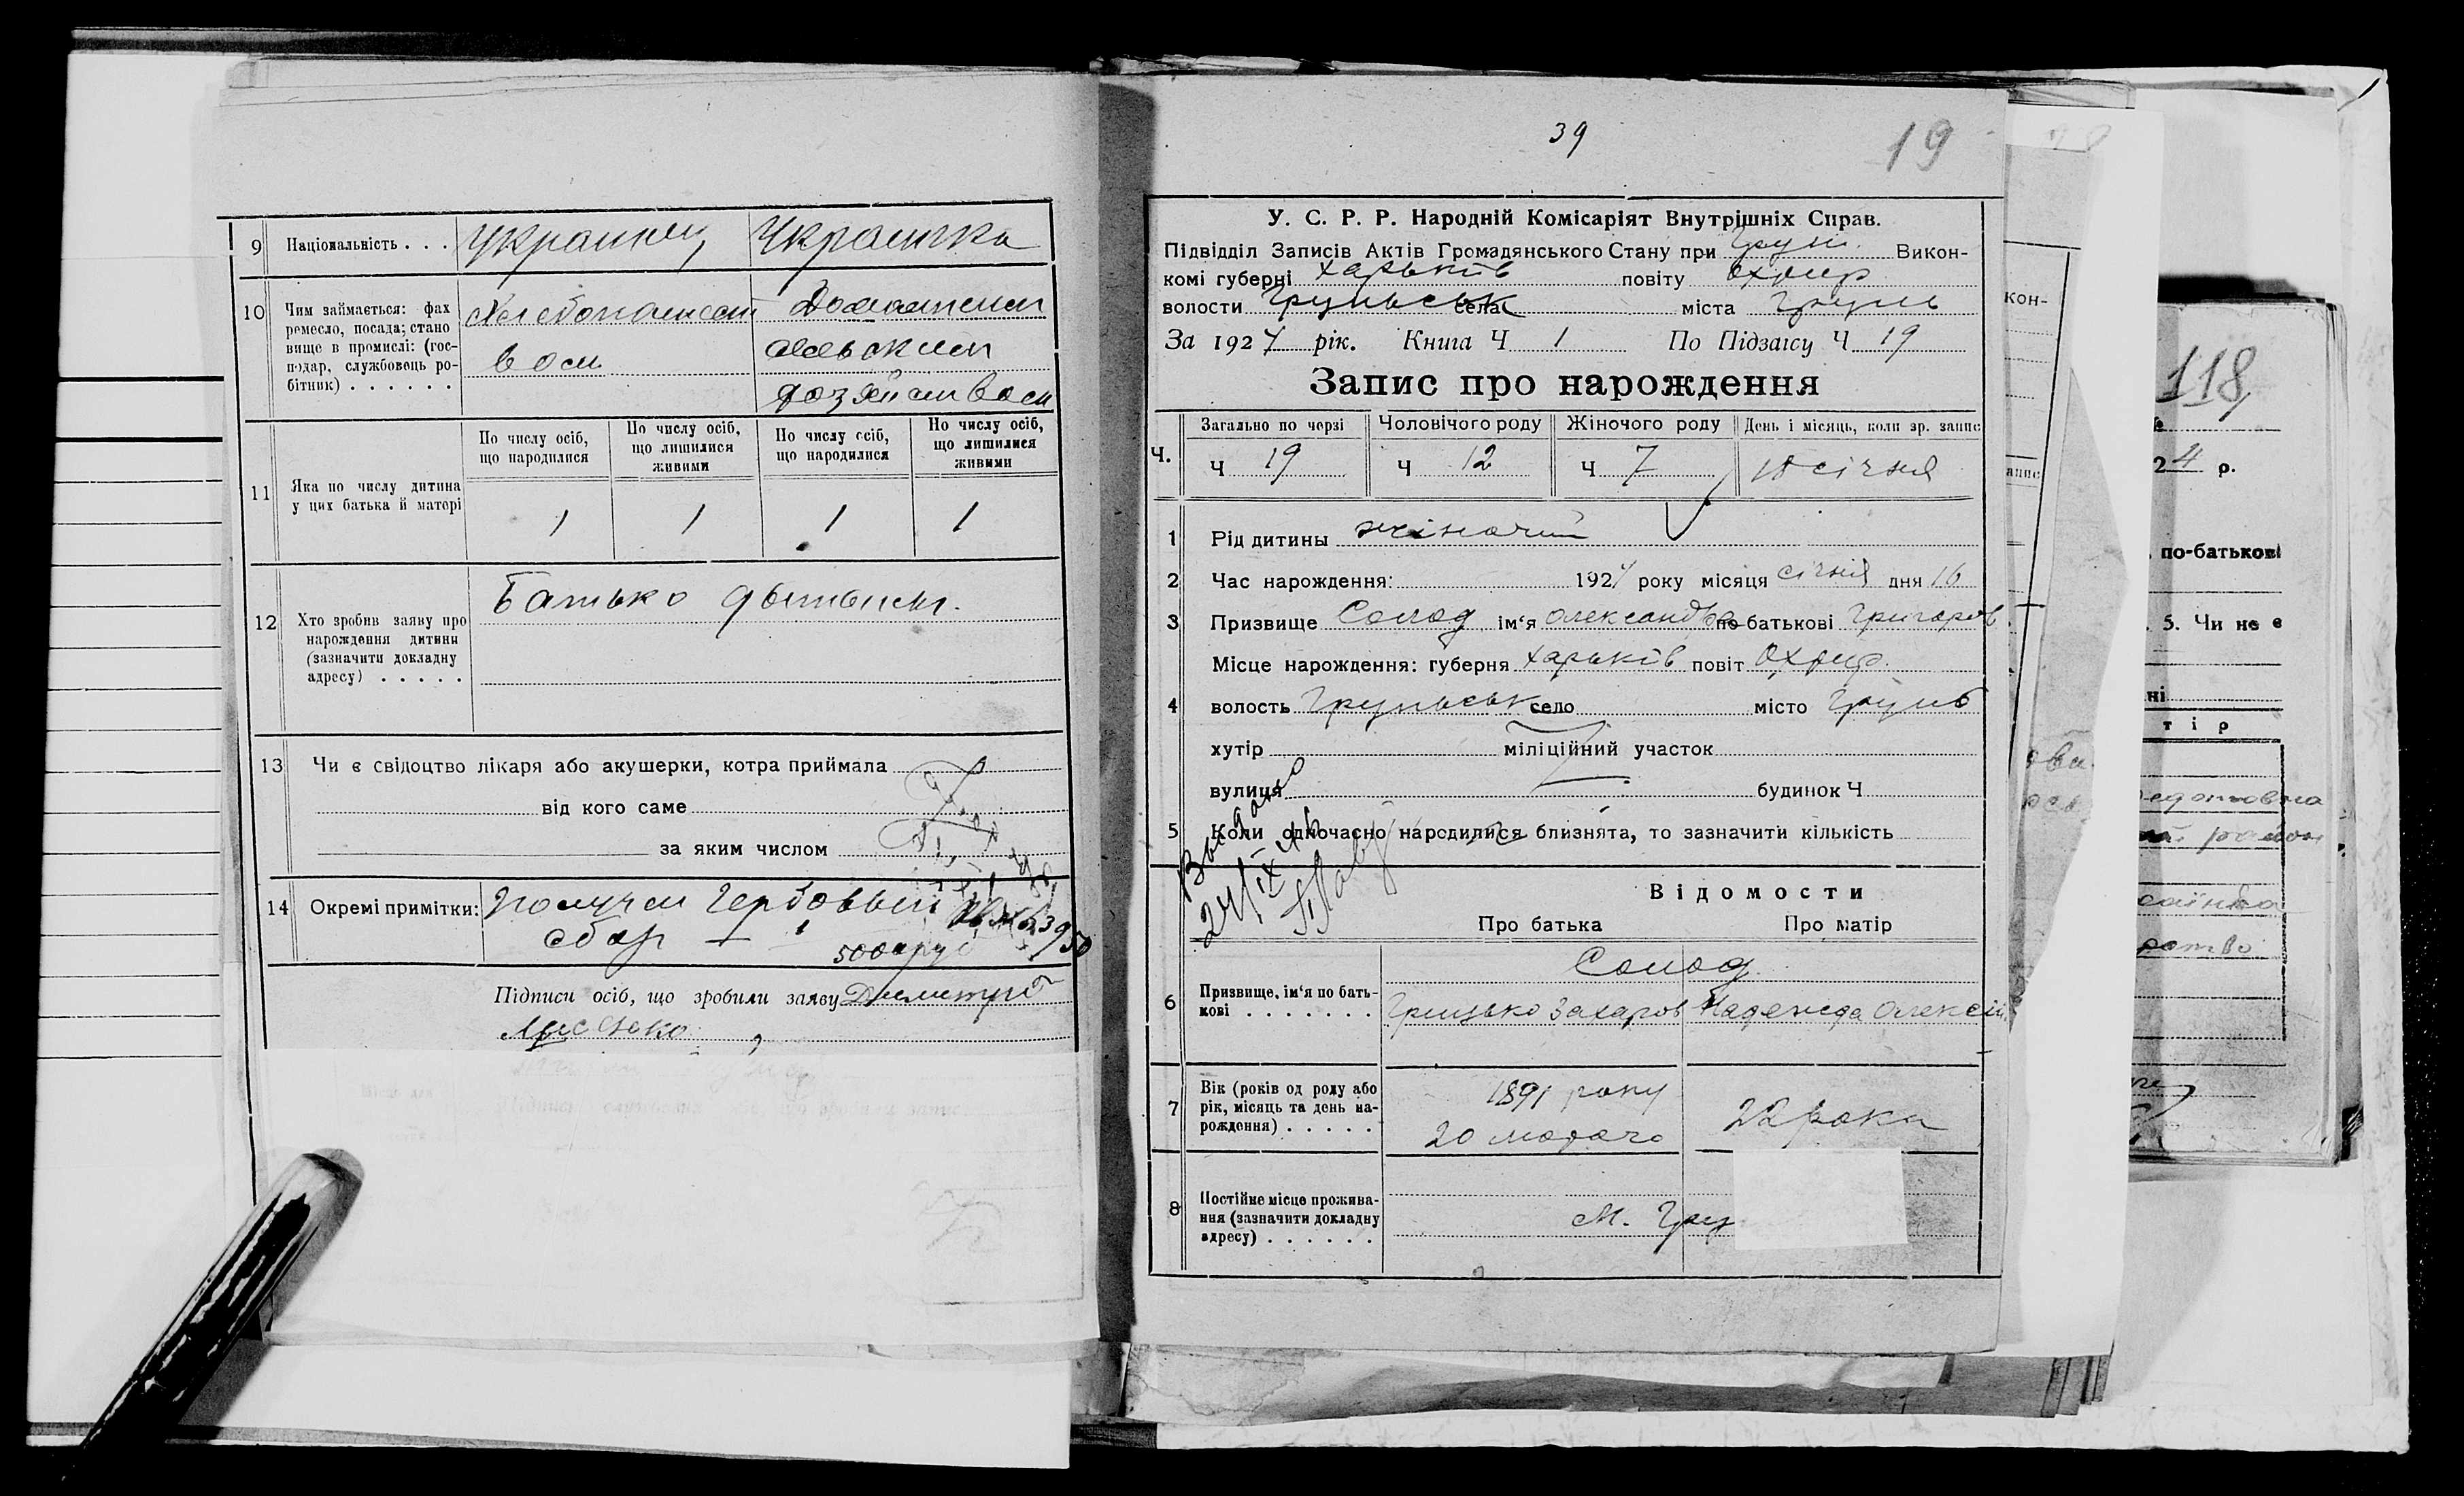 9 Національність . . . Украинец Украинка
10 Чим займається: фах
ремесло, посада; стано
вище в промислі: (гос-
подар, службовець ро-
бітник) . . . . . .
Хлебопашест
вом
Домашним
сельским
хозяйством
11 Яка по числу дитина
у цих батька й матері
По числу осіб,
що народилися
По числу осіб,
що лишилися
живими
По числу осіб,
що народилися
Но числу осіб,
що лишилися
живими
1 1 1 1
12 Хто зробив заяву про
нарождення дитини
(зазначити докладну
адресу) . . . . .
Батько
13 Чи є свідоцтво лікаря або акушерки, котра приймала
від кого саме
за яким числом
14 Окремі примітки: Получен гербовый
сбор 5000 руб
Підписи осіб, що зробили заяву Дмитрий
39
19
У. С. Р. Р. Народній Комісаріят Внутрішніх Справ.
Підвідділ Записів Актів Громадянського Стану при Грун. Викон-
комі губерні Харьків повіту Охтир
волости Груньськ села міста Грунь
За 1924 рік. Книга Ч 1 По Підзагсу Ч 19
Запис про нарождення
Ч.
Загально по черзі Чоловічого роду Жіночого роду День і місяць, коли зр. запис
Ч 19 Ч 12 Ч 7 січня
1 Рід дитины жіночий
2 Час нарождення: 1924 року місяця січня дня 16
3 Призвище Солод ім'я Олександра по-батькові Григоров
Місце нарождення: губерня Харьків повіт Охтир
4 волость Груньськ село місто Грунь
хутір міліційний участок
вулиця будинок Ч
5 Коли одночасно народилися близнята, то зазначити кількість
Выдано
24/IX
Відомости
Про батька Про матір
6 Призвище, ім'я по бать-
кові . . . . . . .
Солод
Грицько Захаров Надежда Олексій
7 Вік (років од роду або
рік, місяць та день на-
рождення) . . . . .
1891 року
20
22 роки
8 Постійне місце прожива-
ння (зазначити докладну
адресу) . . . . . .
М. Гру
кон-
апис
118
24 р.
по-батькові
5. Чи не є
ні
тір